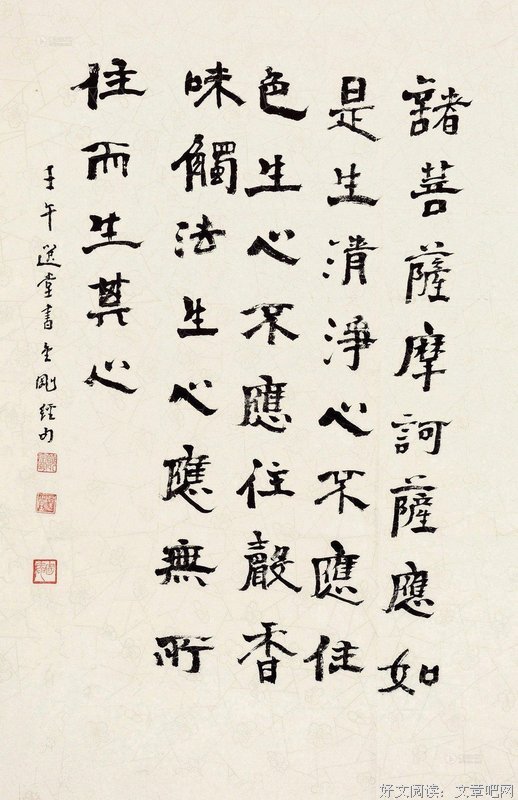 諸菩薩摩訶薩應如
是生清淨心不應住
色生心不應住聲香
味觸法生心應無所
住而生其心
壬午選堂書金剛經句
好文阅读：文章吧网